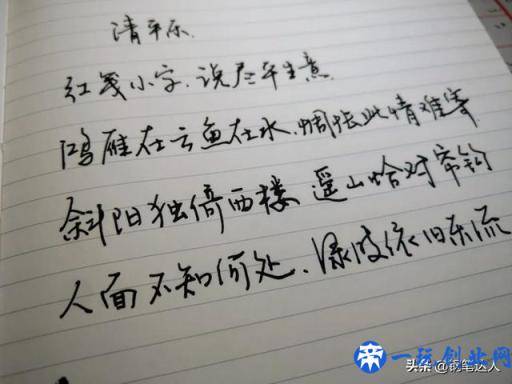 清平乐.
红笺小字.说尽平生意.
鸿雁在云鱼在水.惆怅此情难寄
斜阳独倚西楼 遥山恰对帘钩
人面不知何处.绿波依旧东流
头条@钢笔达人
一玩创业网